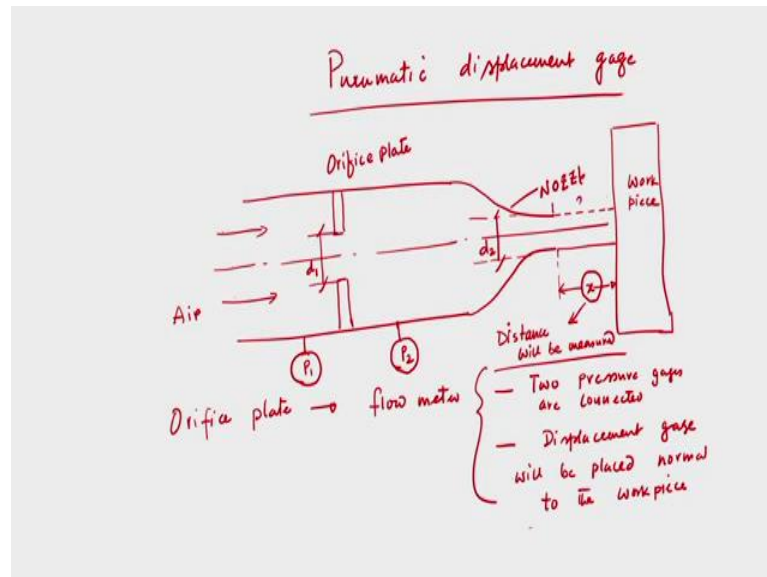 Pneumatic displacement gage
Orifice plate
Nozzle
Work
piece
d1
d2
x
Air
P1
P2
Distance
will be measured
Orifice plate → flow meter
— Two pressure gages
are connected
— Displacement gage
will be placed normal
to the workpiece